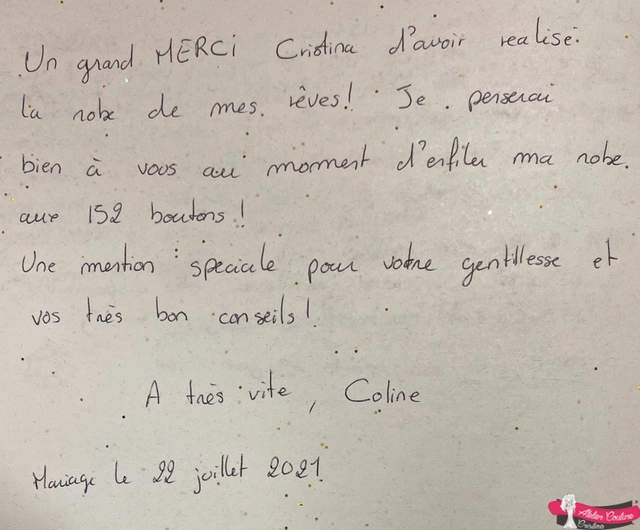 Un grand MERCI Cristina d'avoir realisé
la robe de mes rêves! Je penserai
bien à vous au moment d'enfiler ma robe
aux 152 boutons!
Une mention speciale pour votre gentillesse et
vos très bon conseils!
A très vite, Coline
Mariage le 22 juillet 2021
Atelier Couture
Cristina